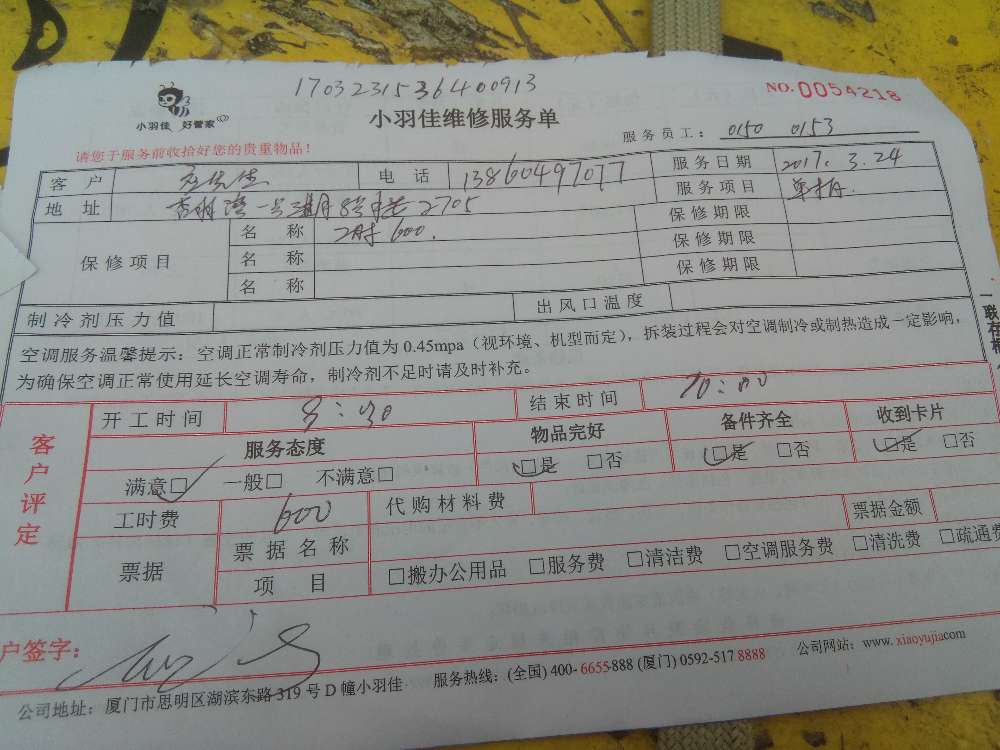 1703231536400913
NO.0054218
小羽佳 好管家
小羽佳维修服务单
服务员工： 0150 0153
请您于服务前收拾好您的贵重物品！
客户 电话 13860497077 服务日期 2017.3.24
地址 杏林湾一号 2705 服务项目
保修项目 名称 600. 保修期限
名称 保修期限
名称 保修期限
制冷剂压力值 出风口温度
空调服务温馨提示：空调正常制冷剂压力值为0.45mpa（视环境、机型而定），拆装过程会对空调制冷或制热造成一定影响，
为确保空调正常使用延长空调寿命，制冷剂不足时请及时补充。
客户评定
开工时间 8:30 结束时间 10:00
服务态度 物品完好 备件齐全 收到卡片
满意□ 一般□ 不满意□ □是 □否 □是 □否 □是 □否
工时费 600 代购材料费 票据金额
票据 票据名称
项目 □搬办公用品 □服务费 □清洁费 □空调服务费 □清洗费 □疏通费
户签字：
公司地址：厦门市思明区湖滨东路319号D幢小羽佳 服务热线：(全国) 400-6655-888 (厦门) 0592-517 8888 公司网站：www.xiaoyujia.com